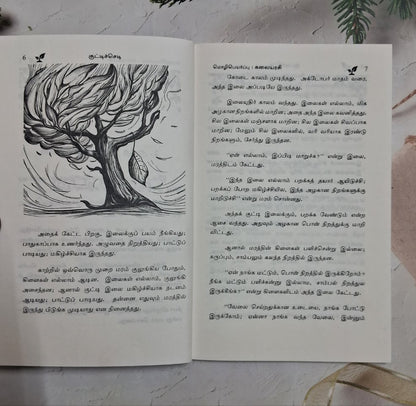 6
குட்டிச்செடி
அதைக் கேட்ட பிறகு, இலைக்குப் பயம் நீங்கியது;
பாதுகாப்பாக உணர்ந்தது. அழுவதை நிறுத்தியது; பாட்டுப்
பாடியது; மகிழ்ச்சியாக இருந்தது.
காற்றில் ஒவ்வொரு முறை மரம் குலுங்கிய போதும்,
கிளைகள் எல்லாம் ஆடின. இலைகள் எல்லாம், குலுங்கி
அசைந்தன; ஆனால் குட்டி இலை மகிழ்ச்சியாக நடனம்
ஆடியது; பாட்டுப் பாடியது. தன்னை எதுவும் மரத்தில்
இருந்து பிடுங்க முடியாது என நினைத்தது.
மொழிபெயர்ப்பு : கலையரசி
7
கோடை காலம் முடிந்தது. அக்டோபர் மாதம் வரை,
அந்த இலை அப்படியே இருந்தது.
இலையுதிர் காலம் வந்தது. இலைகள் எல்லாம், மிக
அழகான நிறங்களில் மாறின; அதை இலை கவனித்தது.
சில இலைகள் மஞ்சளாக மாறின; சில இலைகள் சிவப்பாக
மாறின; மேலும் சில இலைகளில், வரி வரியாக இரண்டு
நிறங்களும், சேர்ந்து இருந்தன.
"ஏன் எல்லாம், இப்படி மாறுகின்றன?" என்று இலை,
மரத்திடம் கேட்டது.
"இந்த இலை எல்லாம் பறக்கத் தயார் ஆயிடுச்சி;
பறக்கப் போற மகிழ்ச்சியில, இந்த அழகான நிறங்களுக்கு
மாறிடுச்சி" என்று மரம் சொன்னது.
அந்தக் குட்டி இலைக்கும், பறக்க வேண்டும் என்ற
ஆசை வந்தது. அதுவும் அழகான பொன் நிறத்துக்கு மாறி
விட்டது.
ஆனால் மரத்தின் கிளைகள் பளிச்சென்று இல்லை;
கருப்பும், சாம்பலும் கலந்த நிறத்தில் இருந்தன.
"ஏன் நாங்க மட்டும், பொன் நிறத்தில் இருக்கிறோம்?
நீங்க மட்டும் பளிச்சுன்னு இல்லாம, சாம்பல் நிறத்துல
இருக்கீங்க?" என்று கிளைகளிடம் அந்த இலை கேட்டது.
"வேலை செய்றதுக்கான உடையை, நாங்க போட்டு
இருக்கோம்; ஏன்னா நாங்க வந்த வேலை, இன்னும்